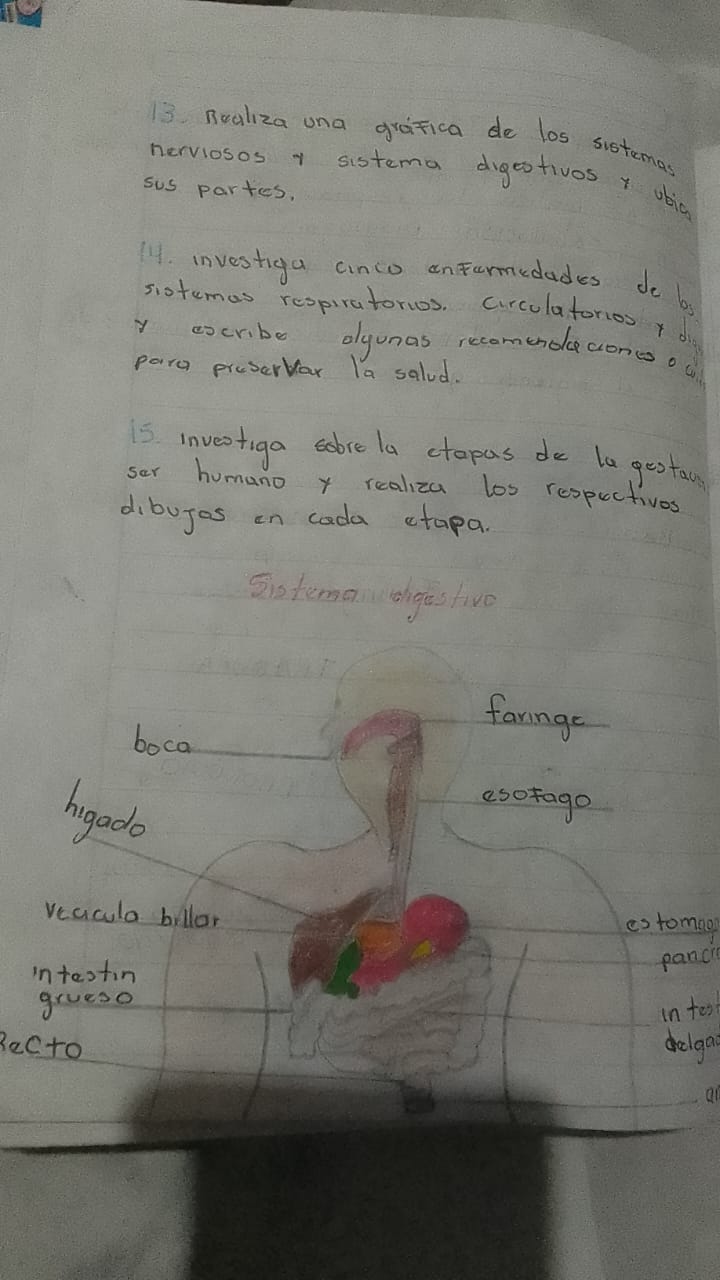 13. Realiza una gráfica de los sistemas
nerviosos y sistema digestivos y ubica
sus partes.
14. investiga cinco enfermedades de los
sistemas respiratorios. circulatorios y dig
y escribe algunas recomendaciones o
para preservar la salud.
15. investiga sobre la etapas de la
ser humano y realiza los respectivos
dibujas en cada etapa.
Sistema digestivo
faringe
boca
esofago
higado
vecicula billar
estomago
intestin
grueso
Recto